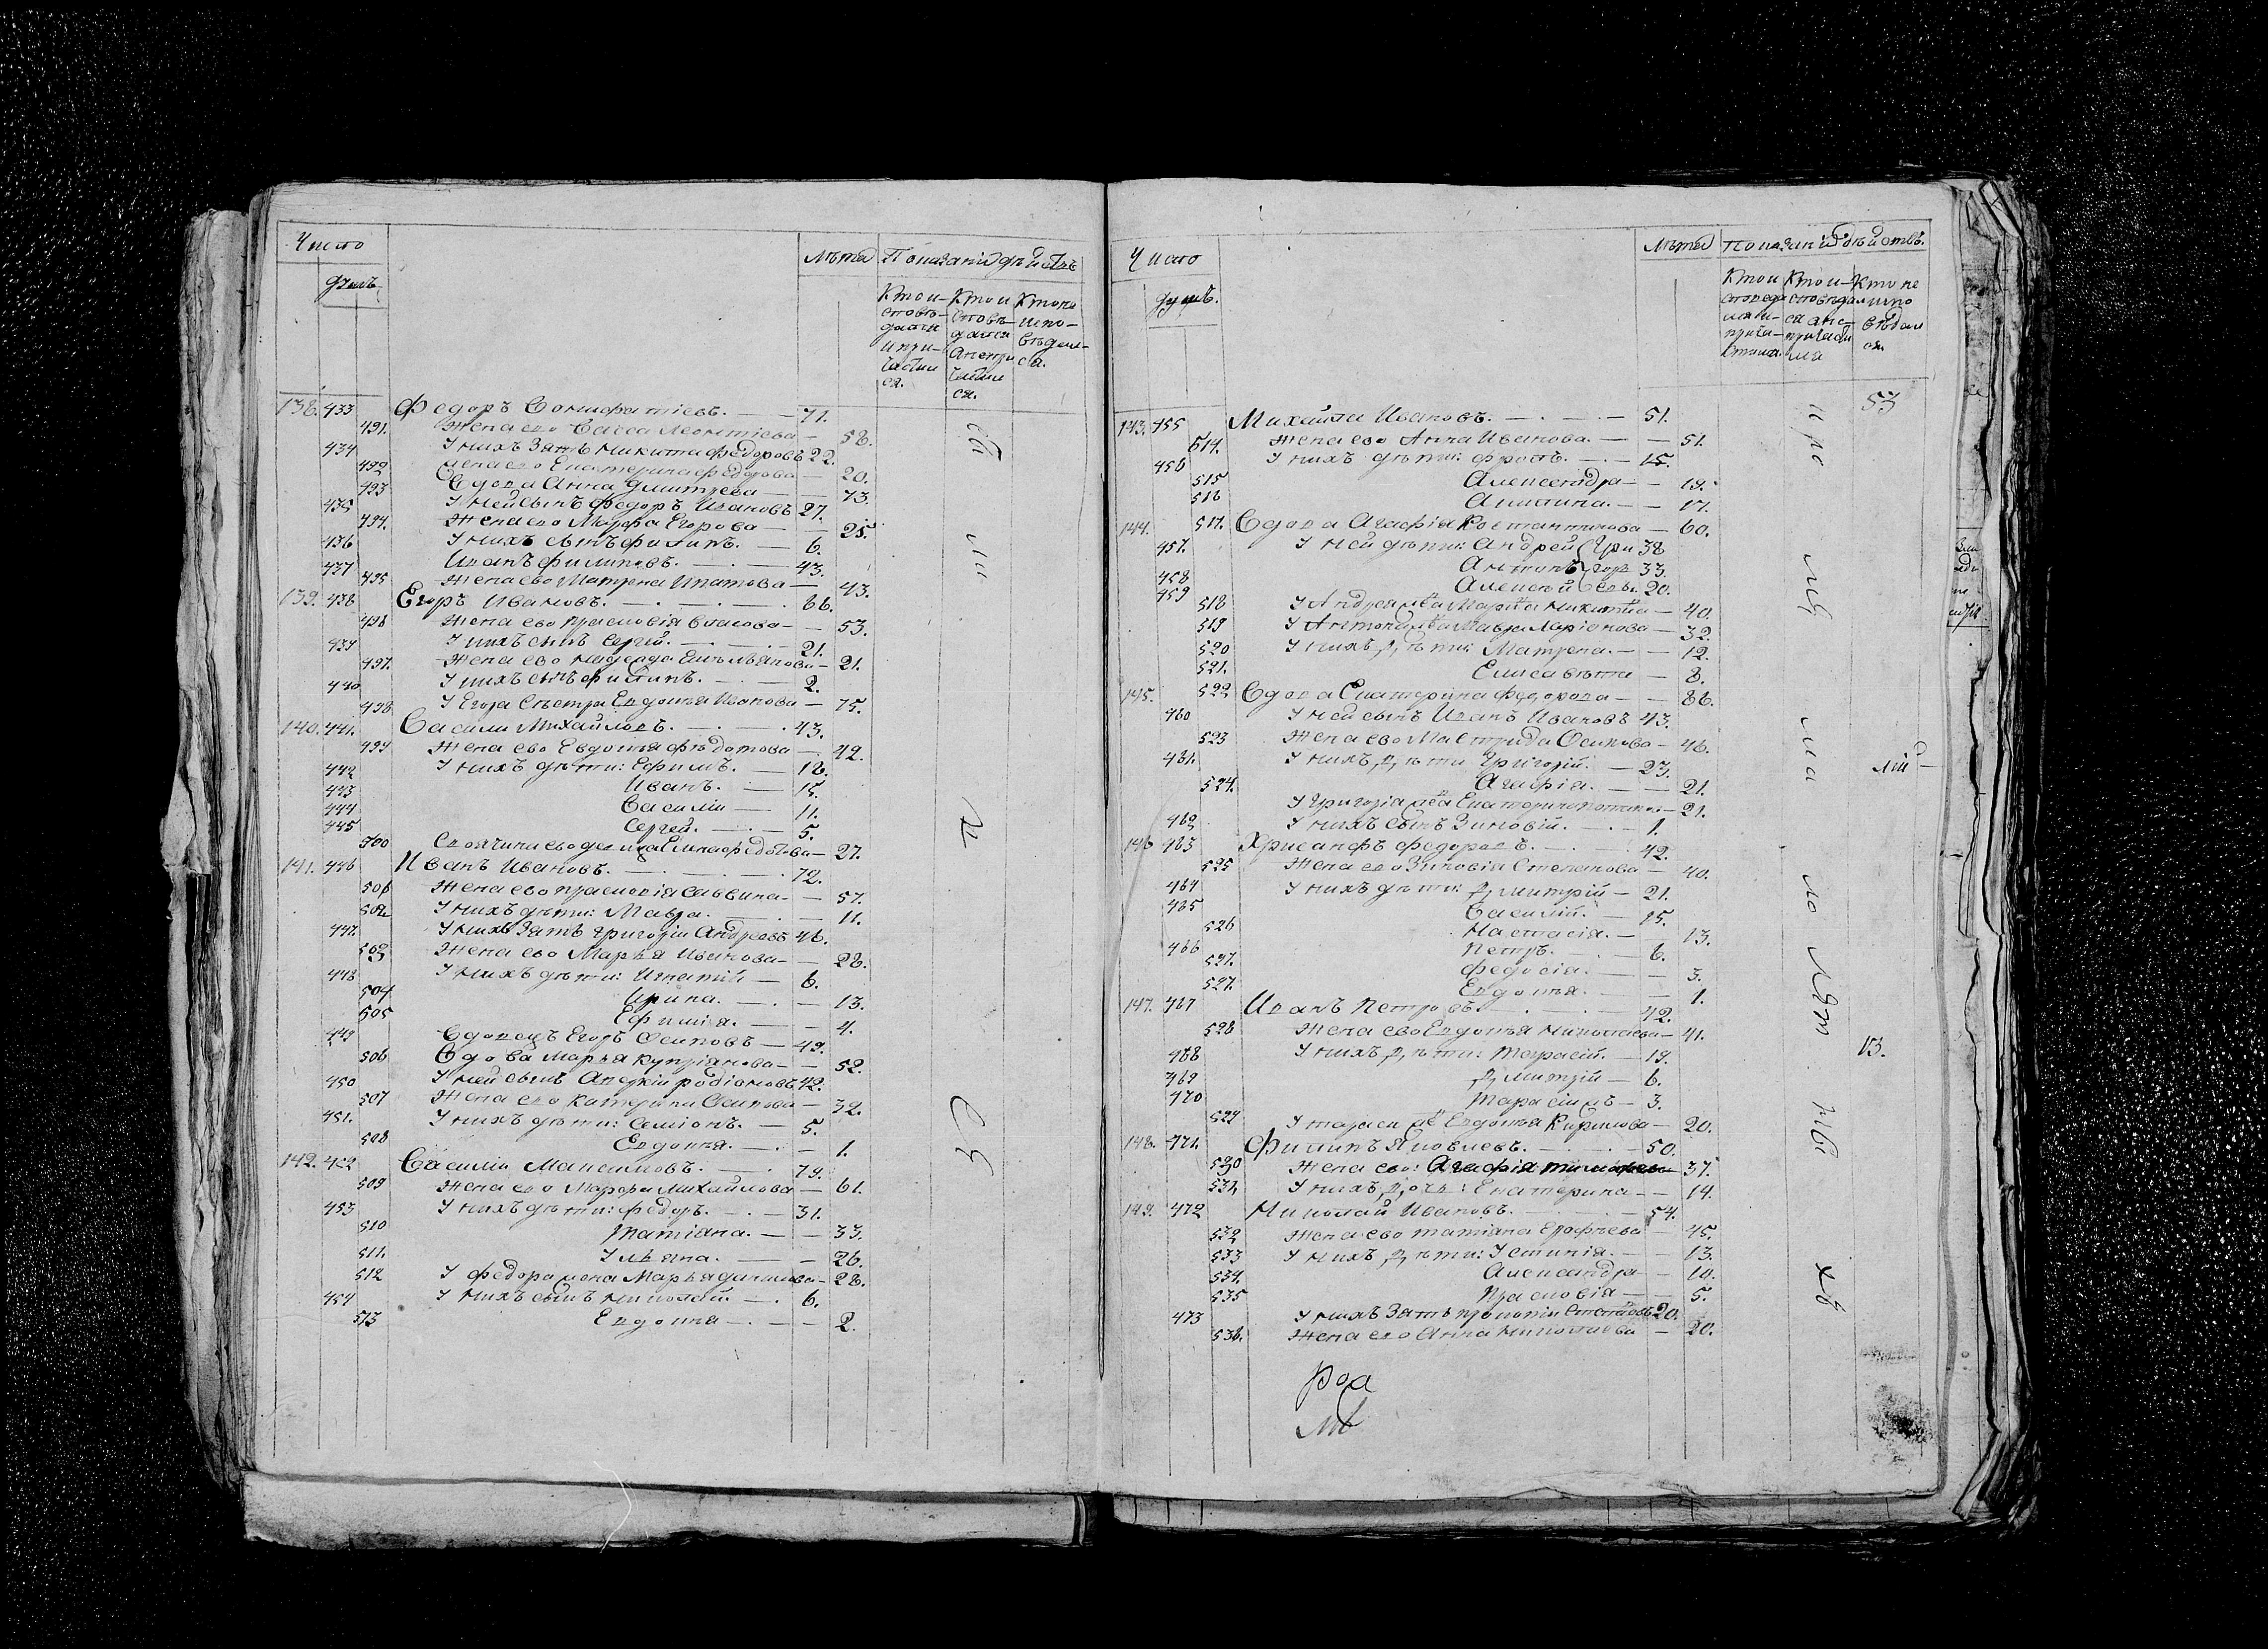 Число
душъ
Лѣта
Показаніи дѣйствъ
Кто исповѣдался и причастился.
Кто исповѣдался а не причастился.
Кто не исповѣдался.
138. 433 Федоръ Вонифатіевъ. 71.
491. Жена ево Васса Леонтіева 58.
434 У нихъ Зять Никита Федоровъ 22.
492 жена ево Екатерина федорова 20.
493 Вдова Анна Дмитрева 73.
435 У ней сынъ Федоръ Ивановъ 27.
494. Жена ево Марфа Егорова 25.
436 У нихъ сынъ филипъ. 6.
437 Иванъ филиповъ. 43.
495 Жена ево Матрена Ипатова 43.
139. 438 Егоръ Ивановъ. 66.
496 Жена ево прасковія Власова 53.
439 У нихъ сынъ Сергей. 21.
497. Жена ево Надежда Емельянова 21.
440 У нихъ сынъ филипъ. 2.
498 У Егора Сестра Евдокья Иванова 75.
140. 441. Василій Михайловъ. 43.
499 Жена ево Евдокия фѣдотова 42.
442 У нихъ дѣти: Ефимъ. 18.
443 Иванъ. 15.
444 Василій 11.
445 Сергей. 5.
500 27.
141. 446 Иванъ Ивановъ. 72.
501 Жена ево прасковія Саввина 57.
502 У нихъ дѣти: Мавра. 11.
447. У нихъ Зять Григорій Андреевъ 46.
503 Жена ево Марья Иванова 28.
448 У нихъ дѣти: Игнатій 6.
504 Ирина. 13.
505 Ефимия. 4.
449 Вдовецъ Егоръ Осиповъ 49.
506 Вдова Марья Купріянова 52.
450 У ней сынъ Авержій родіоновъ 42.
507 Жена ево Катерина Осипова 32.
451. У нихъ дѣти: Семіонъ. 5.
508 Евдокия. 1.
142. 452 Василій Максимовъ. 79.
509 Жена ево Марфа Михайлова 61.
453 У нихъ дѣти: федоръ. 31.
510 Татіана. 33.
511. Ульяна. 26.
512 У федора жена Марья 28.
454 У нихъ сынъ Николай. 6.
513 Евдокия 2.
Число
душъ.
Лѣта
Показаніи дѣйствъ.
Кто исповедался и причастился.
Кто исповѣдался а не причастился
Кто не исповѣдался.
53
143. 455 Михайла Ивановъ. 51.
514. Жена ево Анна Иванова. 51.
456 У нихъ дѣти: фролъ. 15.
515 Александра 19.
516 Акилина. 17.
144. 517. Вдова Агафія Костантинова 60.
457. У ней дѣти: Андрей 38
458 Антонъ 33.
459 Алексѣй 20.
518 40.
519 32.
520 У нихъ дѣти: Матрена. 12.
521. Елисавѣта 8.
145. 522 Вдова Екатерина Федорова 86.
460 У ней сынъ Иванъ Ивановъ 43.
523 Осипова 46.
461. У нихъ дѣти Григорій. 23.
524. Агафія. 21.
21.
462 У нихъ сынъ Зиновій. 1.
146 463 Хрисанфъ Федоровъ. 42.
525 Жена ево Зиновія Степанова 40.
464 У нихъ дѣти: Дмитрій 21.
465 Василій. 15.
526 Настасія. 13.
466 Петръ. 6.
527. Федосія. 3.
527. Евдокья. 1.
147. 467 Иванъ Петровъ. 42.
528 Жена ево Евдокья Николаева 41.
468 У нихъ дѣти: 19.
469 Дмитрій 6.
470 3.
529 Евдокья Кирилова 20.
148. 471. Филипъ Яковлевъ. 50.
530 Жена ево: Агафія 37.
531, У нихъ дочь: Екатерина 14.
149. 472 Николай Ивановъ. 54.
532 Жена ево татіана Ерофѣева 45.
533 У нихъ дѣти: Устинія. 13.
534. Александра 10.
535 Прасковія 5.
473 У нихъ Зять 20.
536. Жена ево Анна Николаева 20.